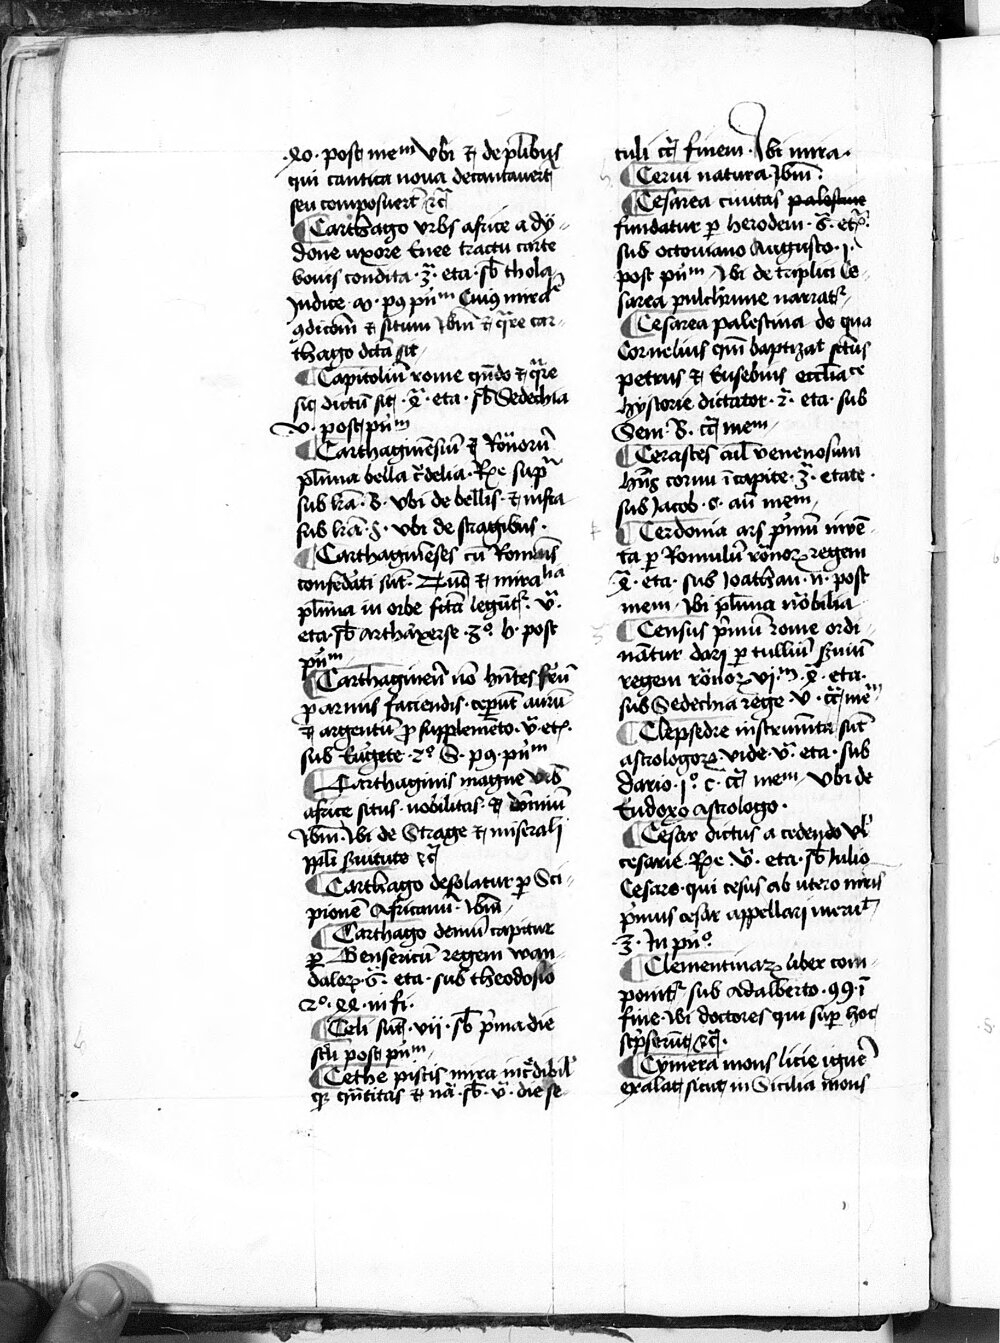 .xo. post mem ubi et de pluribus
qui cantica nova decantaverunt
seu composuerunt etc
Carthago urbs africe a dy-
done uxore Enee tractu corte
bovis condita. 3. eta. sb thola
Judice. xv. p9 pnm Cuius mira
9dicom et situm ibm et qre car-
thago dcta sit
Capitoliū rome qndo et qre
sic dictū sit. eta. sb Sedechia
v. post pnm
Carthaginēsiū et Romorū
plima bella crudelia. Rqe supra
sub lra. B. ubi de bellis. et infra
sub lra. S. ubi de stragibus.
Carthaginēses cū Romanis
confedati sūt. Tūc et mirabilia
plima in orbe fcta legūtr. v.
eta. sb Artharxerse. 3o. h. post
pnm
Carthaginen no hntes ferrū
p armis faciendis. ceperūt aurū
et argentū p supplemēto. v. etx.
sub Eugete. 2o. S. p9. pnm
Carthaginis magne urb
africe situs. nobilitas. et domniū
ibm. ubi de Strage et miserali
ppli servitute etc
Carthago desolatur p Sci-
pionē Africanū. ibm
Carthago demū capitur
p Gensericū regem wan-
dalorum. 6. eta. sub theodosio
2o. xx. in fi.
Celi sūt. vii. sb prima die
scli post pnm
Cethe piscis mira incredibil
qr qntitas et na. sb. v. die se
culi cc finem. ubi mira.
Cervi natura. ibm.
Cesarea civitas palestine
fundatur p herodem. 6. etx.
sub octoviano Augusto. 1.
post pnm ubi de triplici Ce-
sarea pulchrime narratr
Cesarea palestina de qua
Cornelius quem baptizat sctus
petrus et Eusebius eccliastice
hystorie dictator. 2. eta. sub
Sem. B. cc mem
Cerastes aial venenosum
hns cornu in capite. 3. etate.
sub Jacob. S. an mem
Cerdonia ars primū inven-
ta p Romulū romorum regem
eta. sub Joathan. n. post
mem. ubi plima nobilia
Census primū rome ordi-
nantur dari p tulliū servium
regem romorum vjm. eta.
sub Sedechia rege. v. cc mem
Clepsedre instrumenta sūt
astrologorum. vide. v. eta. sub
Dario. 1o. c. cc mem ubi de
Eudoxo Astrologo.
Cesar dictus a cedendo vl
cesarie. Rqe v. eta. sb Julio
Cesare. qui cesus ab utero mris
primus cesar appellari meruit
3. In pno.
Clementinarum liber com-
ponitr sub Adalberto. 99. i
fine. ubi doctores qui super hoc
scpserūt etc.
Cymera mons licie ignem
exalat sicut in Sicilia mons